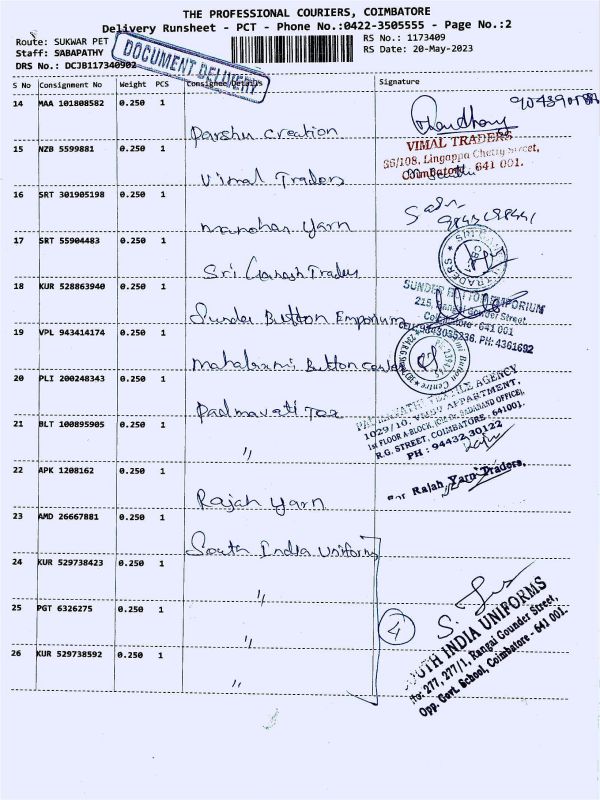 THE PROFESSIONAL COURIERS, COIMBATORE
Delivery Runsheet - PCT - Phone No.:0422-3505555 - Page No.:2
Route: SUKWAR PET
RS No.: 1173409
Staff: SABAPATHY
RS Date: 20-May-2023
DRS No.: DCJB117340902
DOCUMENT DELIVERY
S No Consignment No Weight PCS Consignee Details Signature
14 MAA 101808582 0.250 1 Parshu Creation
15 NZB 5599881 0.250 1 Vimal Traders
VIMAL TRADERS
Lingappa Chetty Street,
Coimbatore 641 001.
16 SRT 301905198 0.250 1 Manohar Yarn
17 SRT 55904483 0.250 1 Sri Ganesh Trades
SRI TRADERS
18 KUR 528863940 0.250 1 Sunder Button Emporium
SUNDER BUTTON EMPORIUM
215, Rangai Gounder Street,
Coimbatore - 641 001
PH: 4361692
19 VPL 943414174 0.250 1 Mahalaxmi Button Center
Button Centre
20 PLI 200248343 0.250 1 Padmavati Tex
TEXTILE AGENCY
1029/10, APPARTMENT,
1st FLOOR A-BLOCK,
R.G. STREET, COIMBATORE - 641001.
PH : 94432 30122
21 BLT 100895905 0.250 1 "
22 APK 1208162 0.250 1 Rajah Yarn
For Rajah Yarn Traders,
23 AMD 26667881 0.250 1 South India Uniforms
24 KUR 529738423 0.250 1 "
25 PGT 6326275 0.250 1 "
4
26 KUR 529738592 0.250 1 "
SOUTH INDIA UNIFORMS
No: 277, 277/1, Rangai Gounder Street,
Opp. Govt. School, Coimbatore - 641 001.